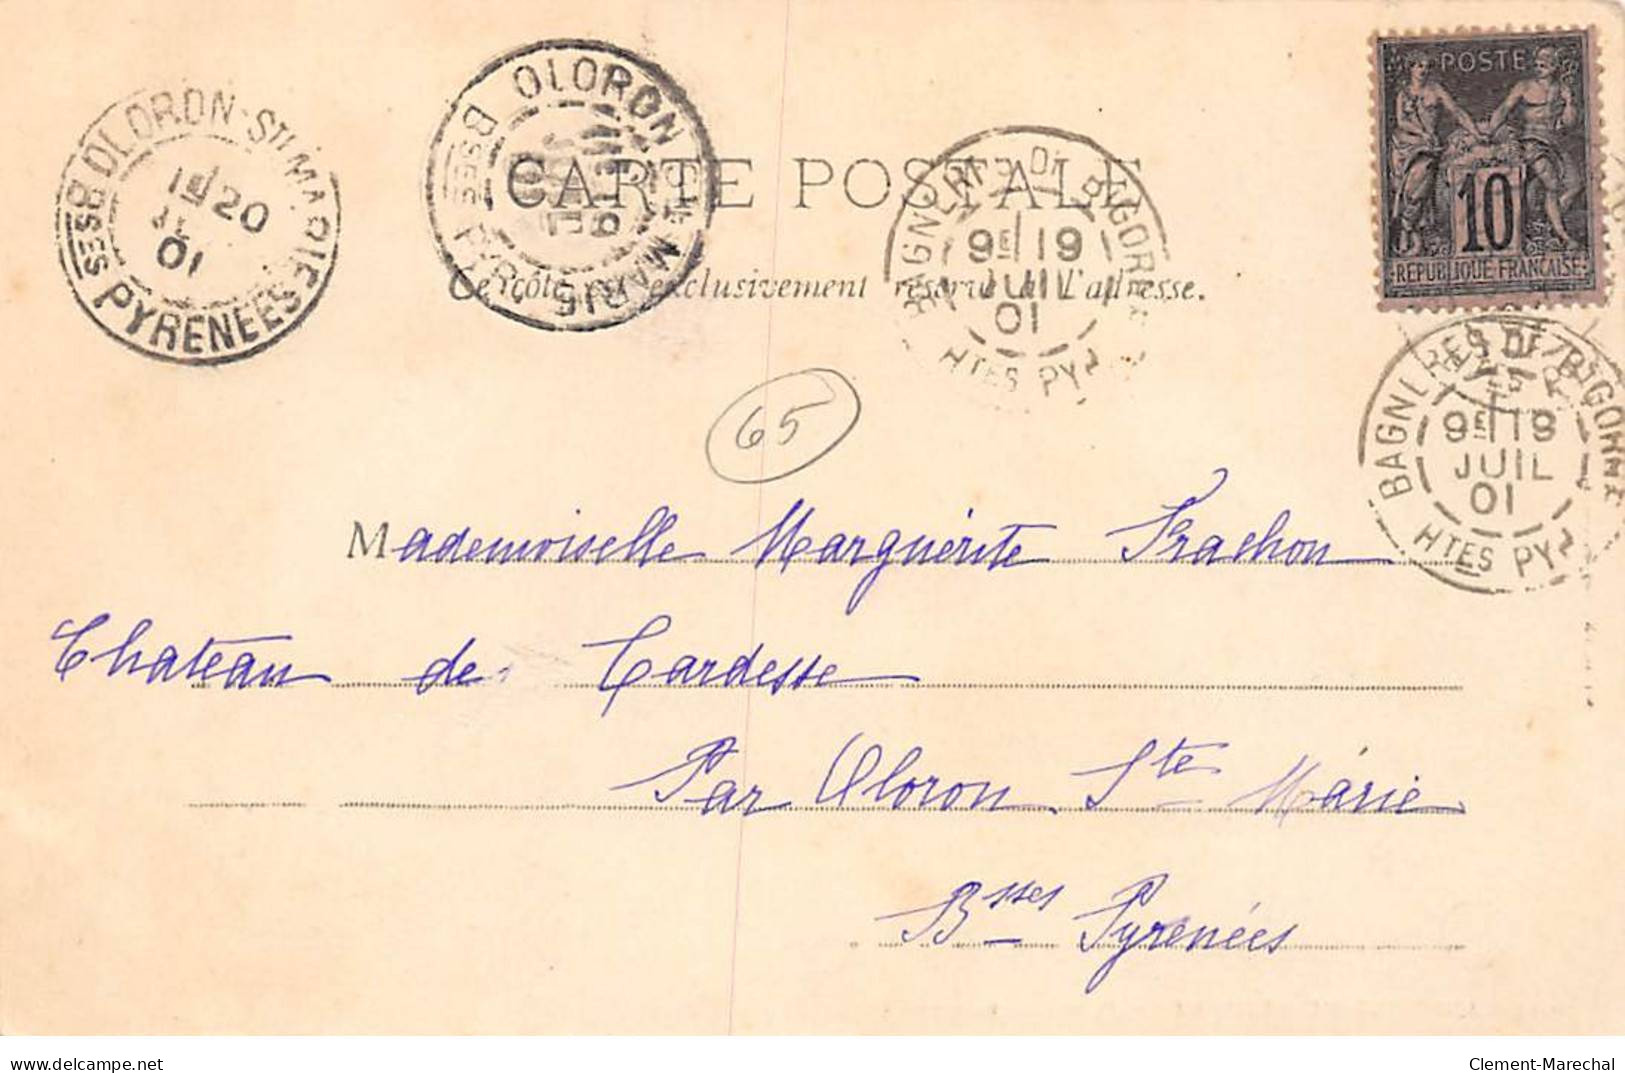 POSTE
10
RÉPUBLIQUE FRANÇAISE
OLORON-STE MARIE
1E/20
01
BSSES PYRENEES
OLORON STE MARIE
BSSES PYR.
BAGNERES DE BIGORRE
9E/19
JUIL
01
HTES PYR
BAGNERES DE BIGORRE
9E/19
JUIL
01
HTES PYR
CARTE POSTALE
Ce côté est exclusivement réservé à l'adresse.
65
Mademoiselle Marguerite Trachon
Château de Cardesse
Par Oloron Ste Marie
Bsses Pyrénées
delcampe.net
Clement-Marechal